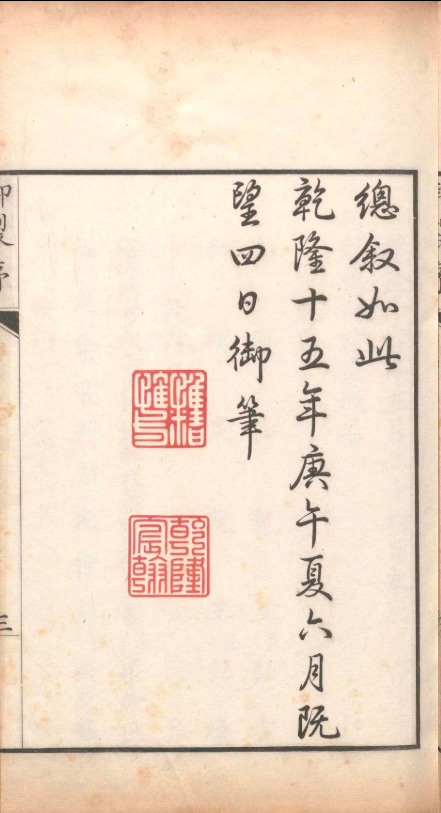 總叙如此
乾隆十五年庚午夏六月既
望四日御筆
乾隆宸翰
御製序
三